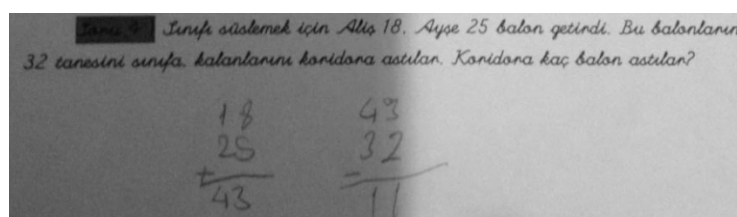 Soru 4 Sınıfı süslemek için Aliş 18, Ayşe 25 balon getirdi. Bu balonların
32 tanesini sınıfa, kalanlarını koridora astılar. Koridora kaç balon astılar?
18 43
25 32
+ -
43 11